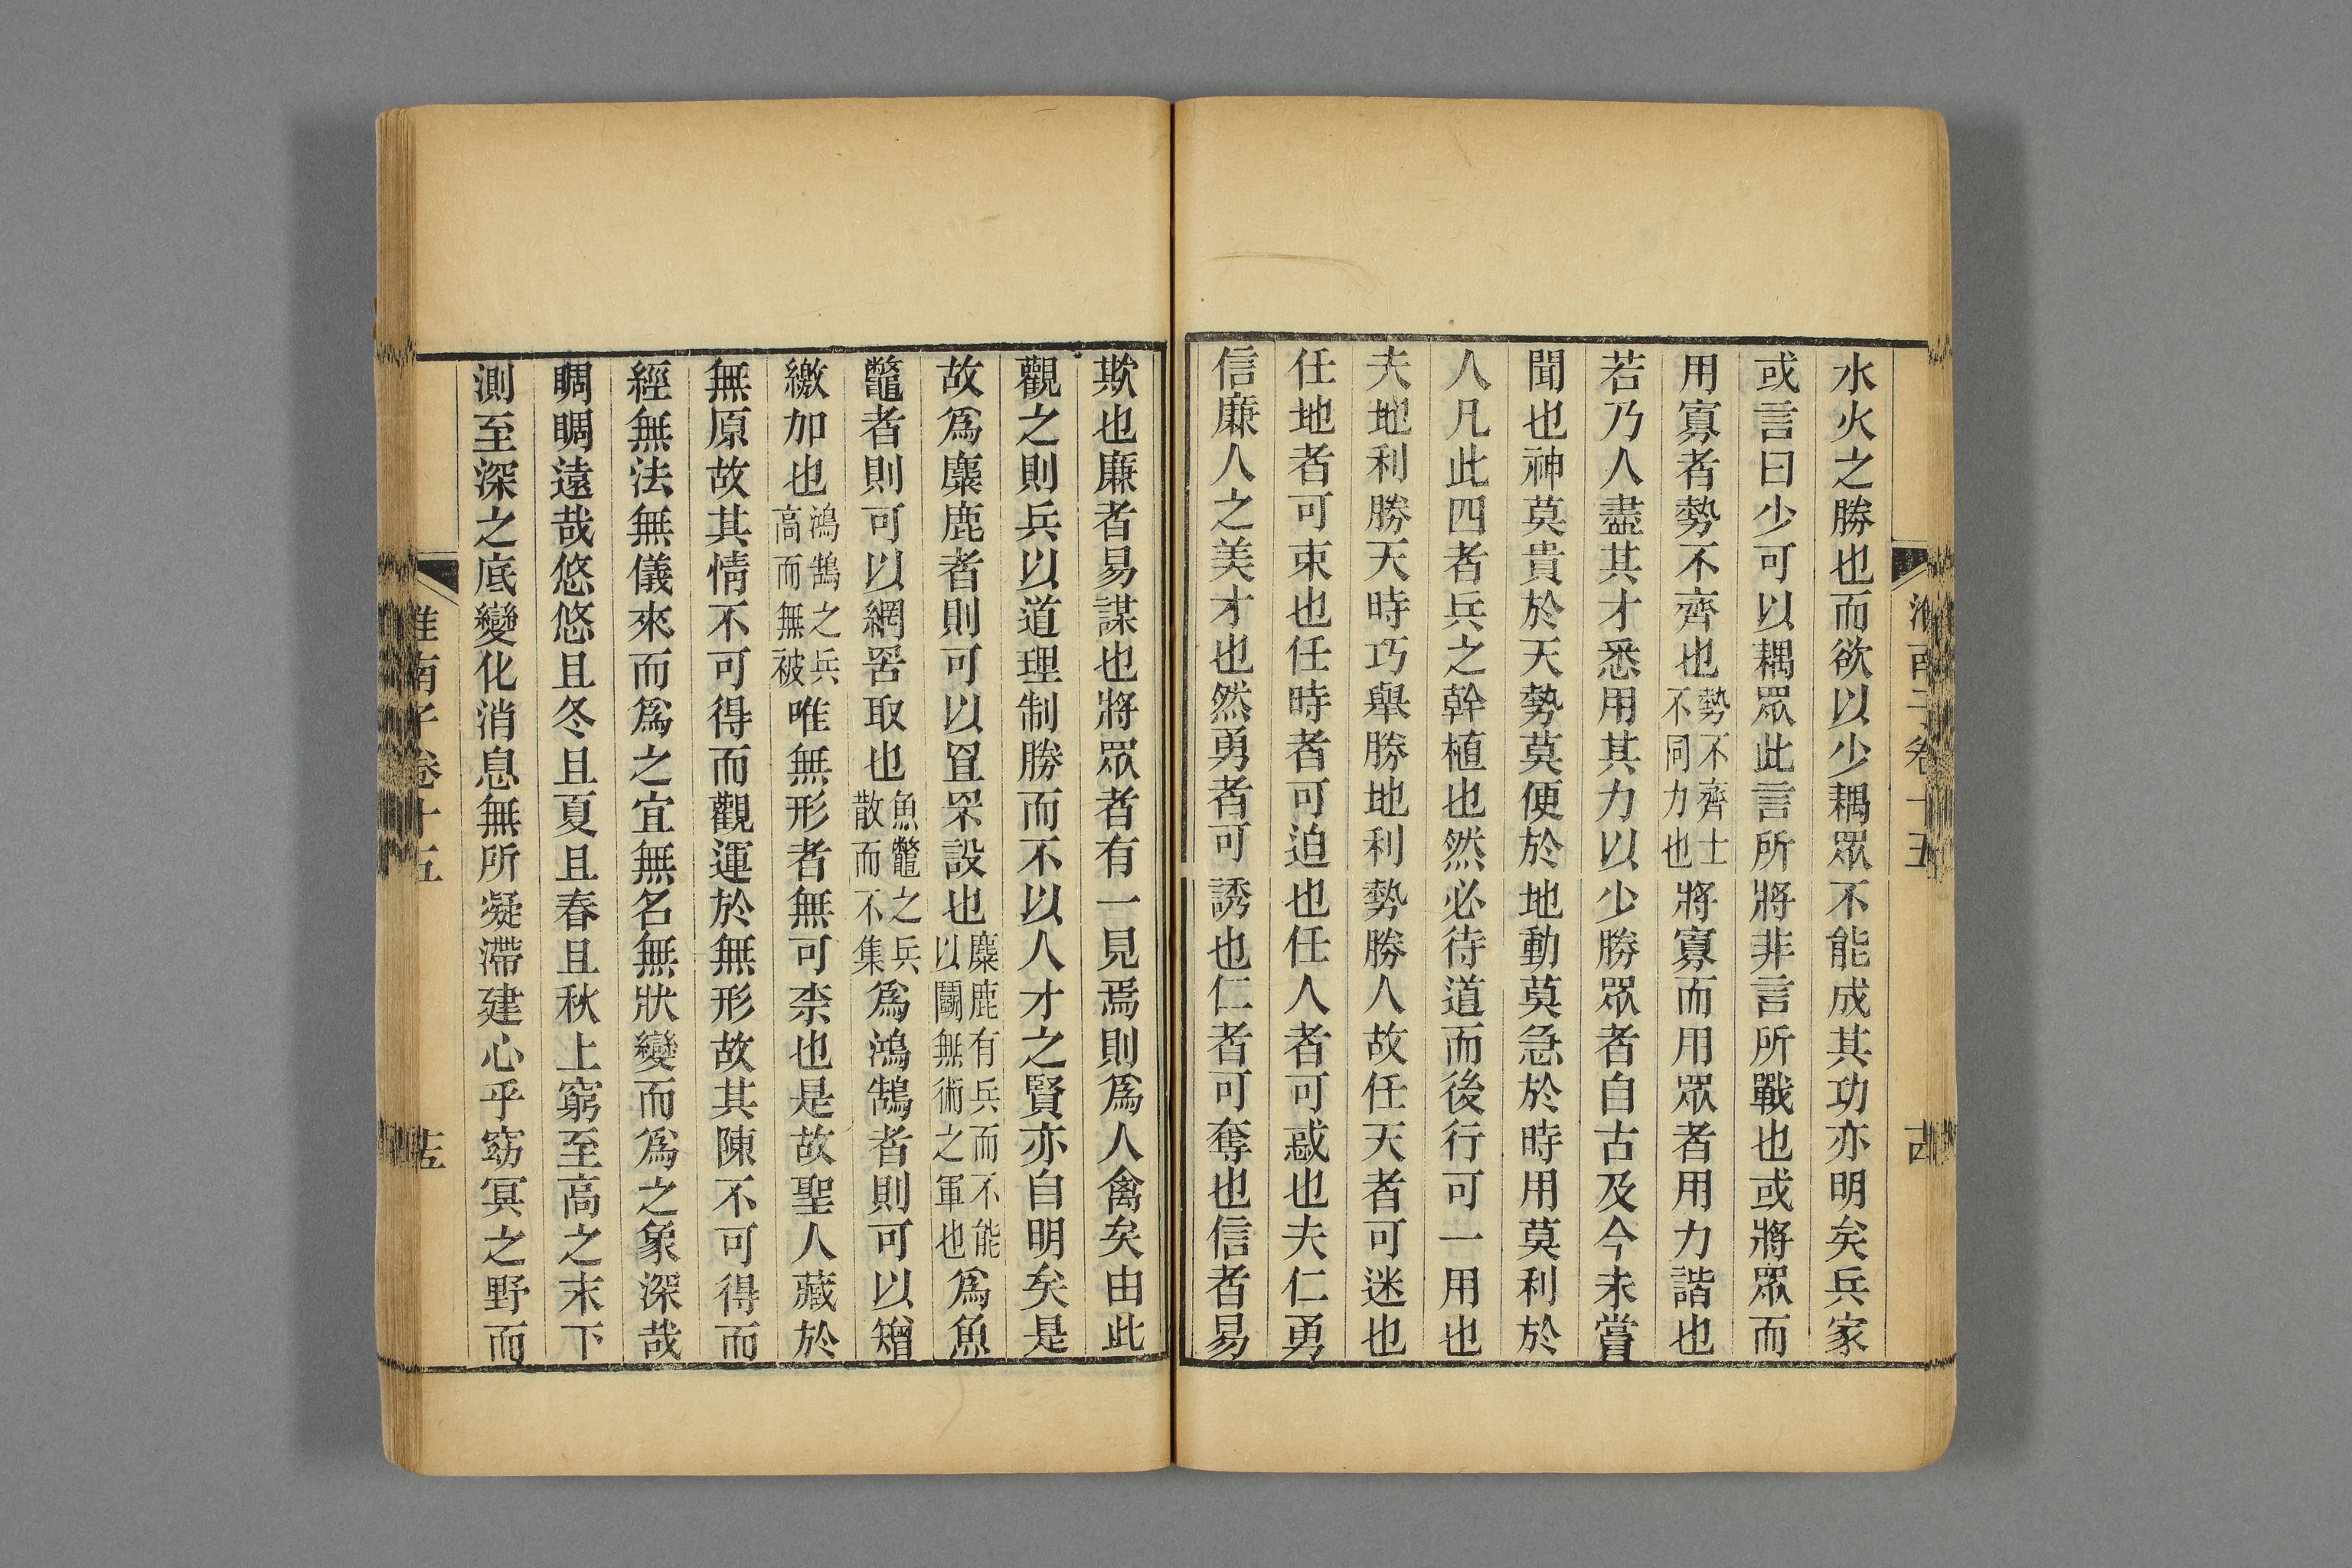 水火之勝也而欲以少耦眾不能成其功亦明矣兵家
或言曰少可以耦眾此言所將非言所戰也或將眾而
用寡者勢不齊也勢不齊士不同力也將寡而用眾者用力諧也
若乃人盡其才悉用其力以少勝眾者自古及今未嘗
聞也神莫貴於天勢莫便於地動莫急於時用莫利於
人凡此四者兵之幹植也然必待道而後行可一用也
夫地利勝天時巧舉勝地利勢勝人故任天者可迷也
任地者可束也任時者可迫也任人者可惑也夫仁勇
信廉人之美才也然勇者可誘也仁者可奪也信者易
欺也廉者易謀也將眾者有一見焉則爲人禽矣由此
觀之則兵以道理制勝而不以人才之賢亦自明矣是
故爲麋鹿者則可以罝罘設也麋鹿有兵而不能以鬭無術之軍也爲魚
鼈者則可以網罟取也魚鼈之兵散而不集爲鴻鵠者則可以矰
繳加也鴻鵠之兵高而無被唯無形者無可柰也是故聖人藏於
無原故其情不可得而觀運於無形故其陳不可得而
經無法無儀來而爲之宜無名無狀變而爲之象深哉
睭睭遠哉悠悠且冬且夏且春且秋上窮至高之末下
測至深之底變化消息無所凝滯建心乎窈冥之野而
淮南子卷十五